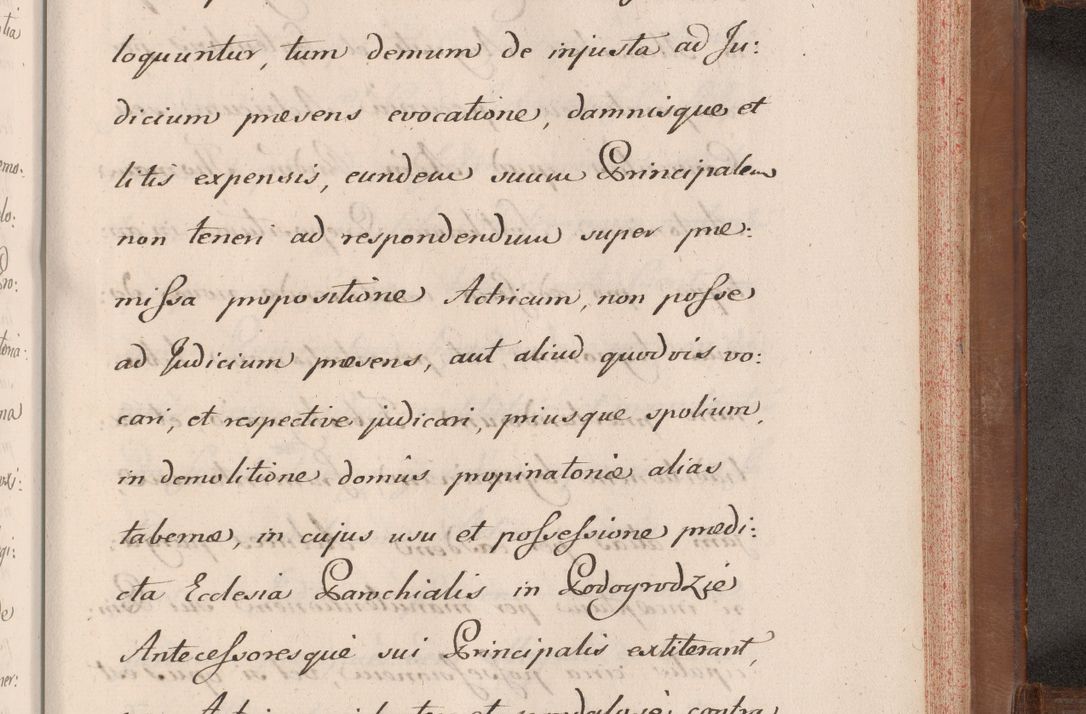 loquuntur, tum demum de injusta ad Ju:
dicium præsens evocatione, damnisque et
litis expensis, eundem suum Principalem
non teneri ad respondendum super præ:
missa propositione Actricum, non posse
ad Judicium præsens, aut aliud quodvis vo:
cari, et respective judicari, priusque spolium,
in demolitione domûs propinatoriæ alias
tabernæ, in cujus usu et possessione prædi:
cta Ecclesia Parochialis in Podogrodzie
Antecessoresque sui Principalis extiterant,
contra